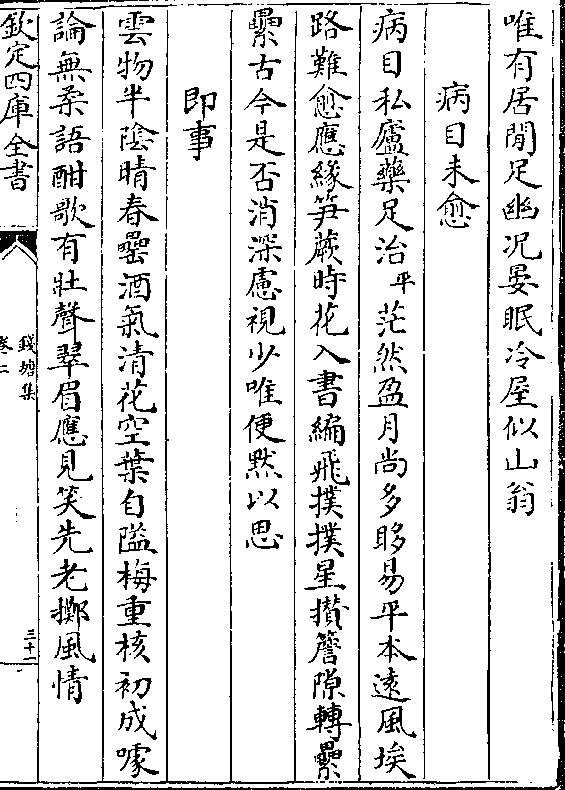 唯有居閒足幽况晏眠冷屋似山翁
病目未愈
病目私廬藥足治平茫然盈月尚多眵易平本遠風埃
路難愈應緣笋蕨時花入書編飛撲撲星攅簷隙轉纍
纍古今是否消深慮視少唯便黙以思
即事
雲物半隂晴春罍酒氣清花空葉自隘梅重核初成噱
論無柔語酣歌有壮聲翠眉應見笑先老擲風情
欽定四庫全書
錢塘集
卷二
三十二